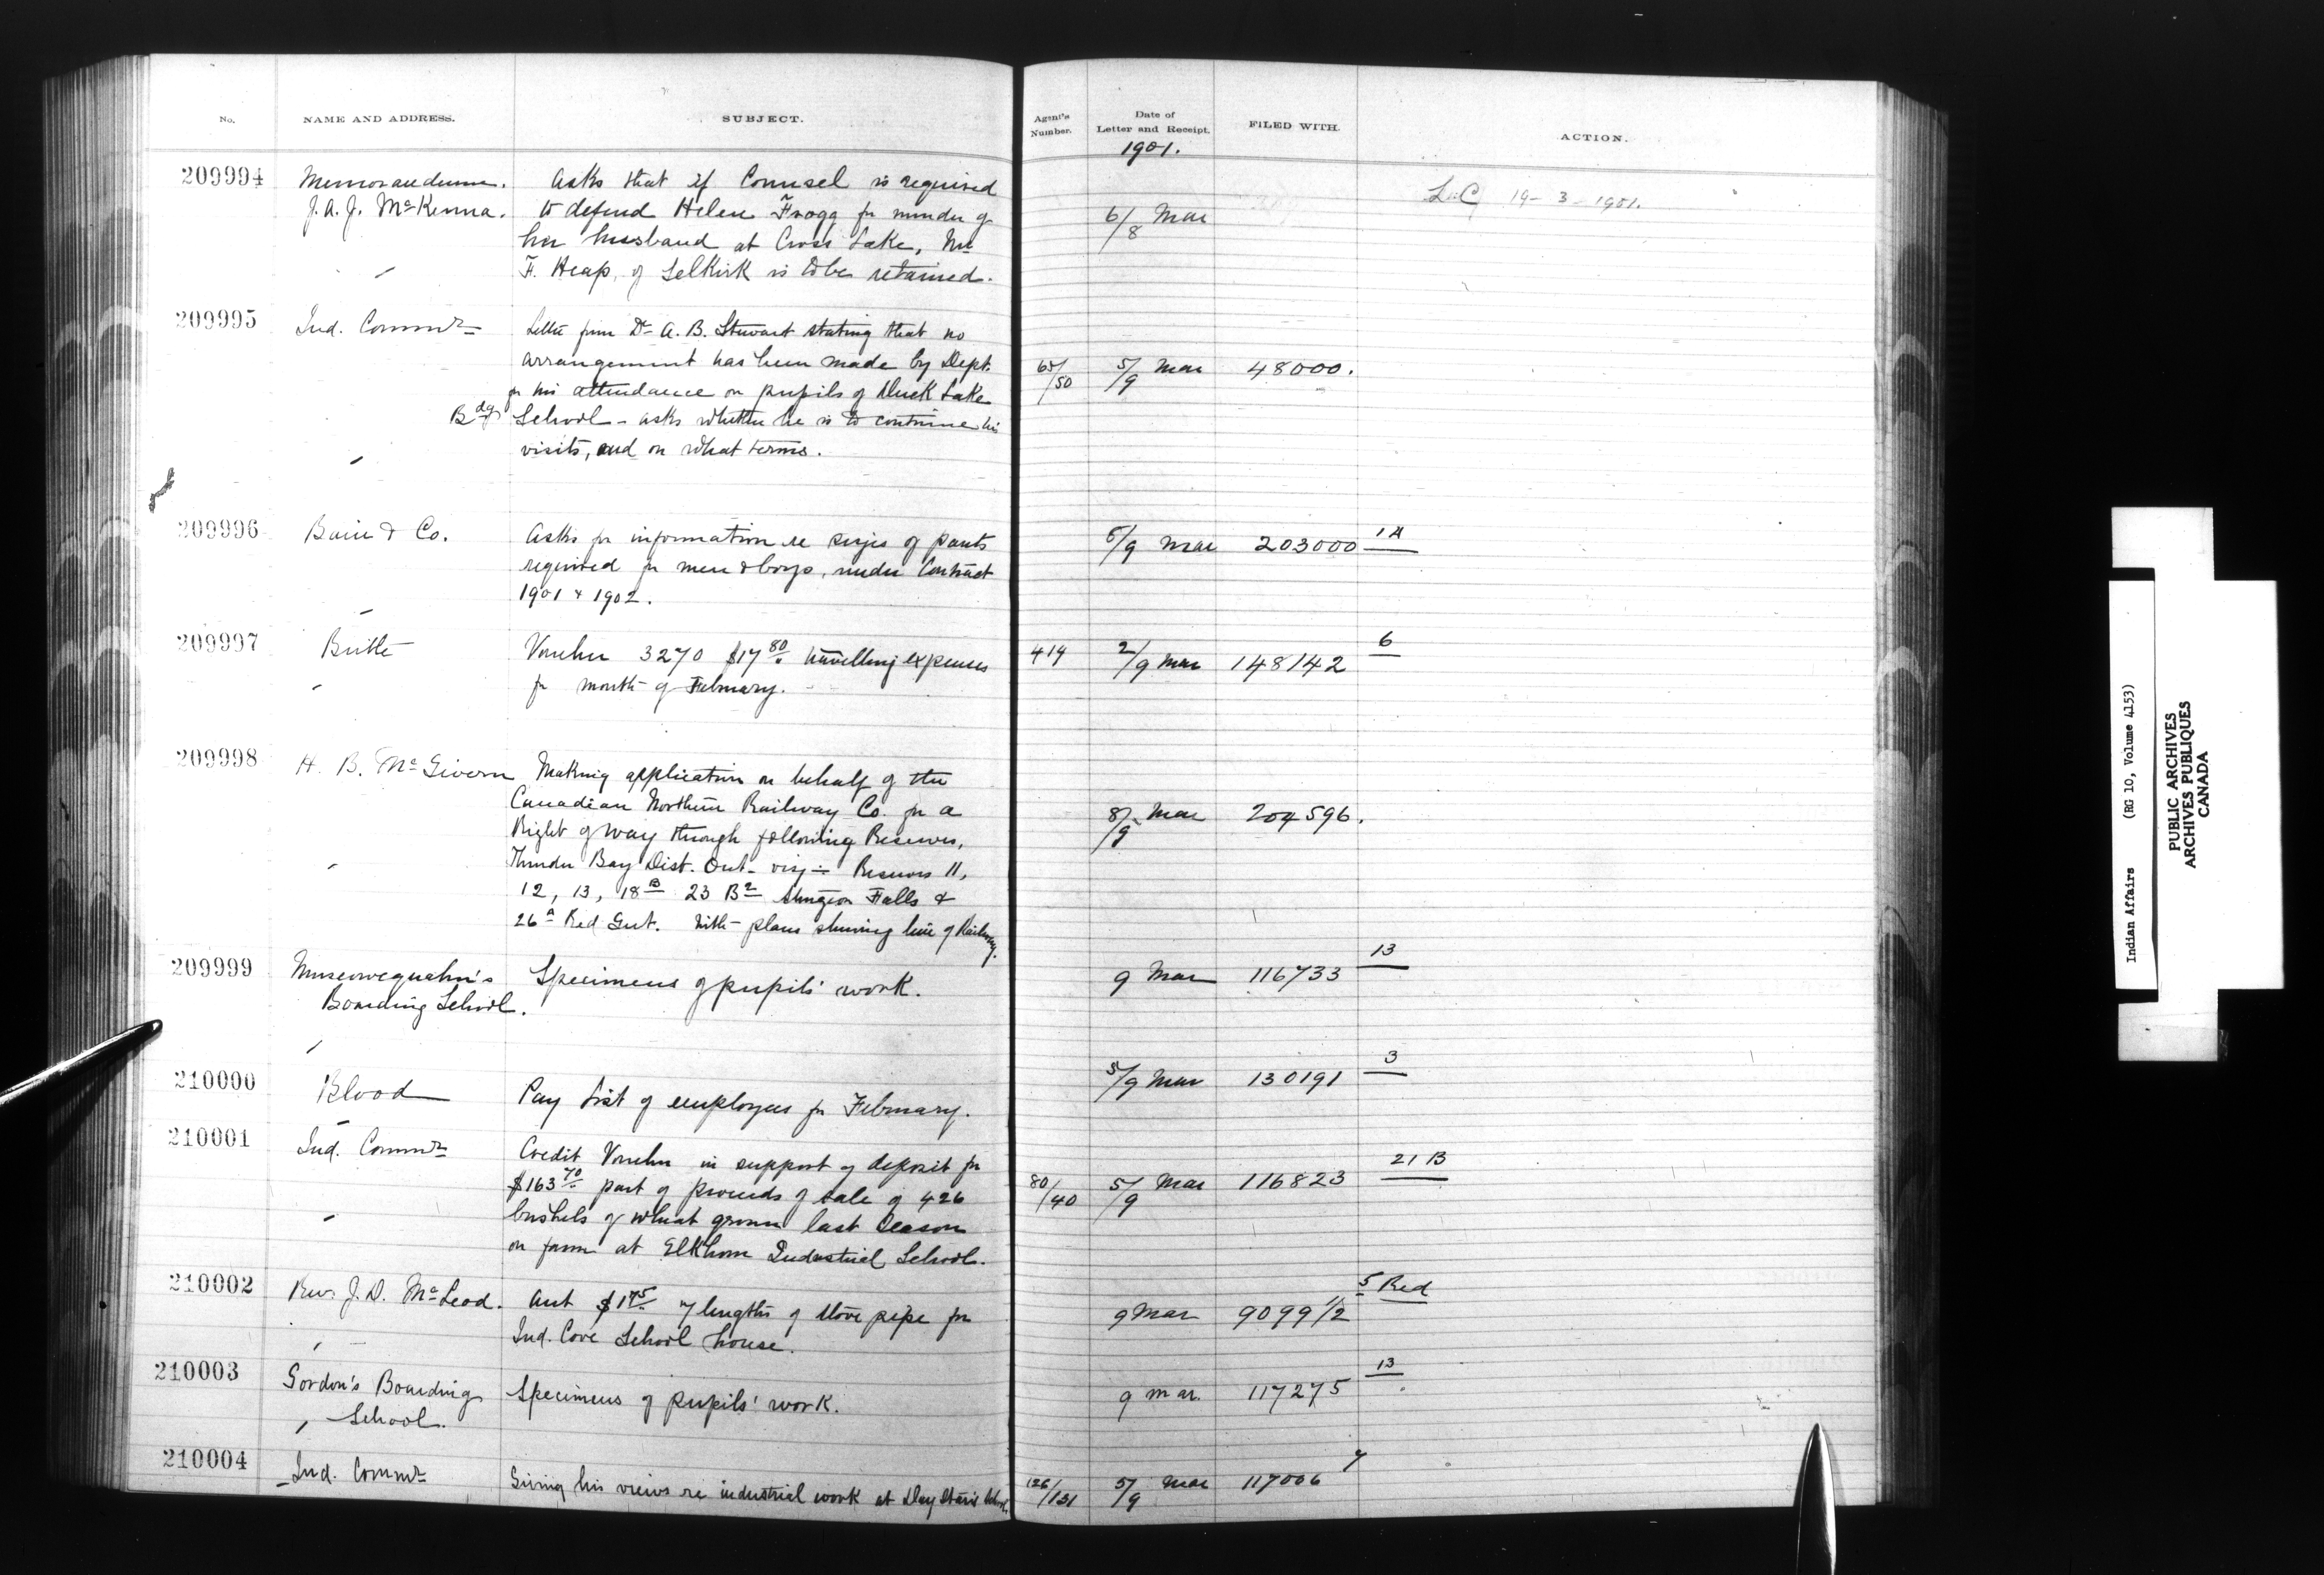 No. NAME AND ADDRESS. SUBJECT. Agent's Number. Date of Letter and Receipt. FILED WITH. ACTION.
1901.
209994 Memorandum. Asks that if Counsel is required
J. A. J. McKenna. to defend Helen Frogg for murder of
her husband at Cross Lake, Mr
F. Heap, of Selkirk is to be retained.
6/8 Mar L.C 19-3-1901.
209995 Ind. Commr Letter from Dr A. B. Stewart stating that no
arrangement has been made by Dept.
for his attendance on pupils of Duck Lake
Bdg School - asks whether he is to continue his
visits, and on what terms.
65/50 5/9 Mar 48000.
209996 Bain & Co. Asks for information re sizes of pants
required for men & boys, under Contract
1901 & 1902.
5/9 Mar 203000 1A
209997 Birtle Voucher 3270 $17.80 travelling expenses
for month of February.
419 2/9 Mar 148142 6
209998 H. B. McGivern Making application on behalf of the
Canadian Northern Railway Co. for a
Right of way through following Reserves,
Thunder Bay Dist. Ont. viz:- Reserves 11,
12, 13, 18B 23 B2 Sturgeon Falls &
26A Red Gut. With plans showing line of Railway.
8/9 Mar 204596.
209999 Muscowequahn's Specimens of pupils' work.
Boarding School.
9 Mar 116733 13
210000 Blood Pay List of employees for February.
5/9 Mar 130191 3
210001 Ind. Commr Credit Voucher in support of deposit for
$163.70 part of proceeds of sale of 426
bushels of wheat grown last season
on farm at Elkhorn Industrial School.
80/40 5/9 Mar 116823 21 B
210002 Rev. J. D. McLeod. Act $1.75 7 lengths of stove pipe for
Ind. Cove School house.
9 Mar 9099 1/2 5 Red
210003 Gordon's Boarding Specimens of pupils' work.
School.
9 Mar. 117275 13
210004 Ind. Commr Giving his views re industrial work at Day Star's School.
126/131 5/9 Mar 117006 7
Indian Affairs (RG 10, Volume 4153)
PUBLIC ARCHIVES
ARCHIVES PUBLIQUES
CANADA